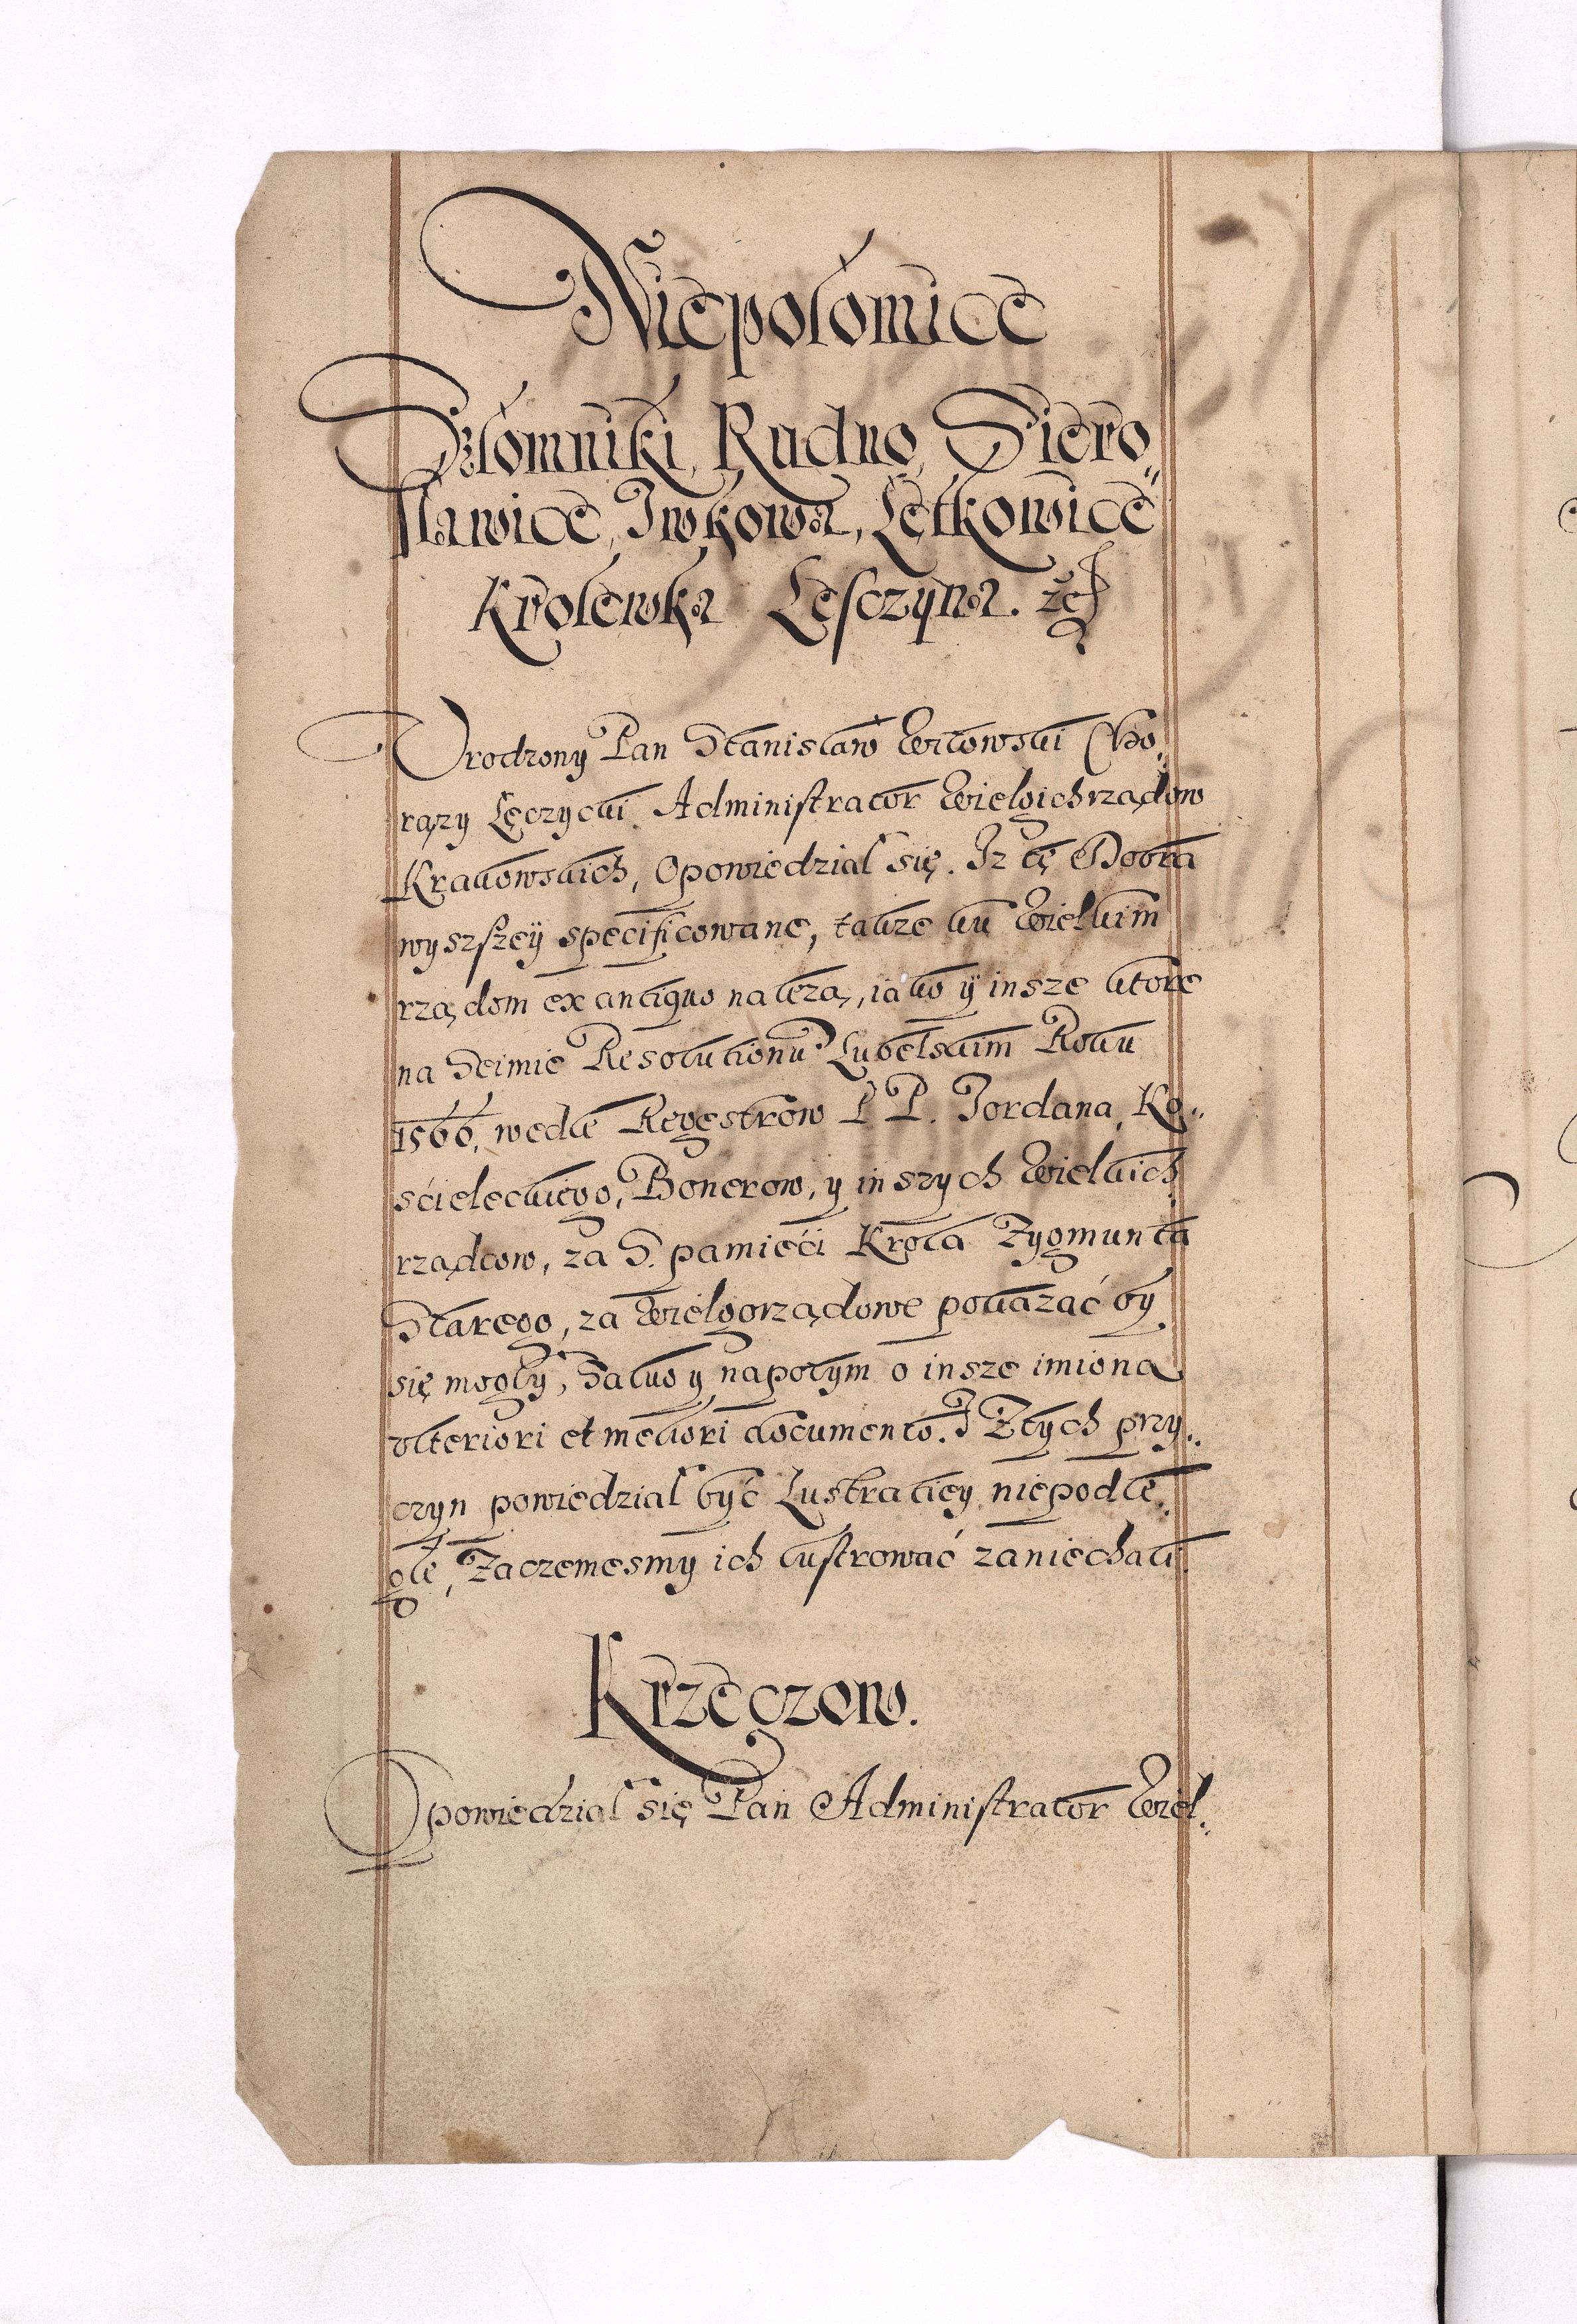 Niepołomice
Słomniki, Rudno, Siero„
sławice, Iwkowa, Lętkowice
Krolewka Lesczyna. etc
Urodzony Pan Stanisław Witowski Cho„
rąży Łęczycki, Administrator Wielgichrządow
Krakowskich, Opowiedział się. Iż te Dobra
wyszszey specificowane, także ku Wielkim
rządom ex antiquo należą, iako ÿ insze ktore
na Seimie Resolutionū Lubelskim Roku
1566, wedle Regestrow P P. Jordana, Ko„
ścieleckiego, Bonerow, y inszych Wielkich
rządcow, za S. pamięći Krola Zygmunta
Starego, za Wielgorządowe pokazać by
się mogły, Salvo y napotym o insze imiona
ulteriori et meliori documento. I Ztych przy„
czyn powiedział być Lustratiey niepodle„
głe, Zaczemesmy ich lustrować zaniechali.
Krzeczow.
Opowiedział się Pan Administrator Wiel„